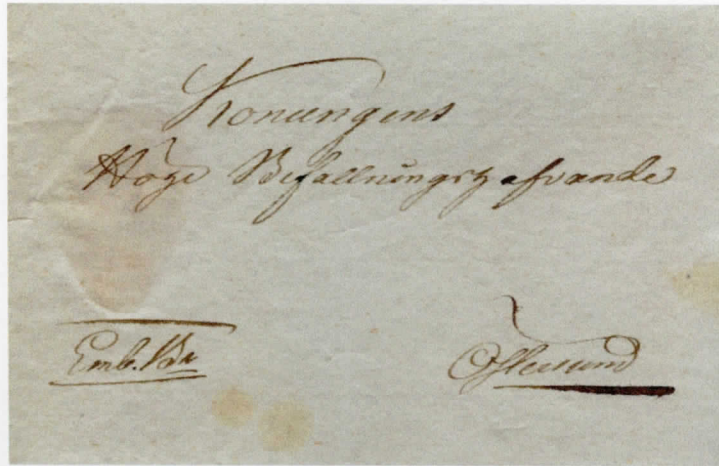 Konungens
Höge Befallningshafvande
Emb. Br
Östersund